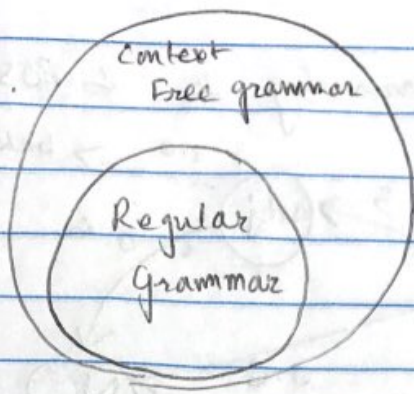 Context
Free grammar
Regular
Grammar